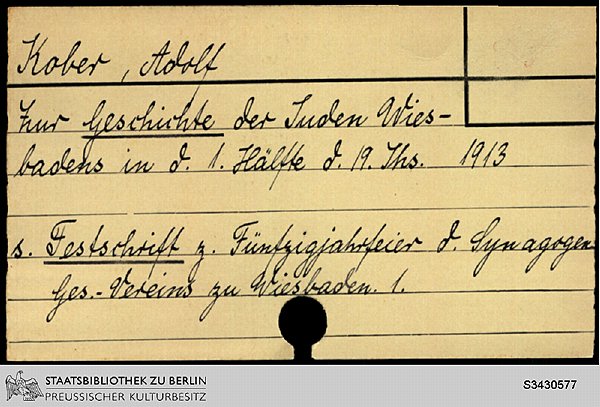 Kober, Adolf
Zur Geschichte der Juden Wies-
badens in d. 1. Hälfte d. 19. Jhs. 1913
s. Festschrift z. Fünfzigjahrfeier d. Synagogen-
Ges.-Vereins zu Wiesbaden. 1.
STAATSBIBLIOTHEK ZU BERLIN
PREUSSISCHER KULTURBESITZ
S3430577